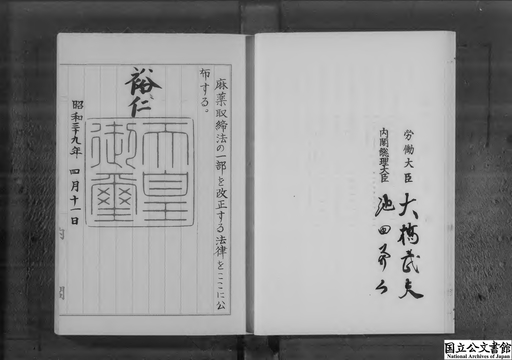 麻薬取締法の一部を改正する法律をここに公
布する。
裕仁
天皇
御璽
昭和三十九年 四月十一日
労働大臣 大橋武夫
内閣総理大臣 池田勇人
国立公文書館
National Archives of Japan